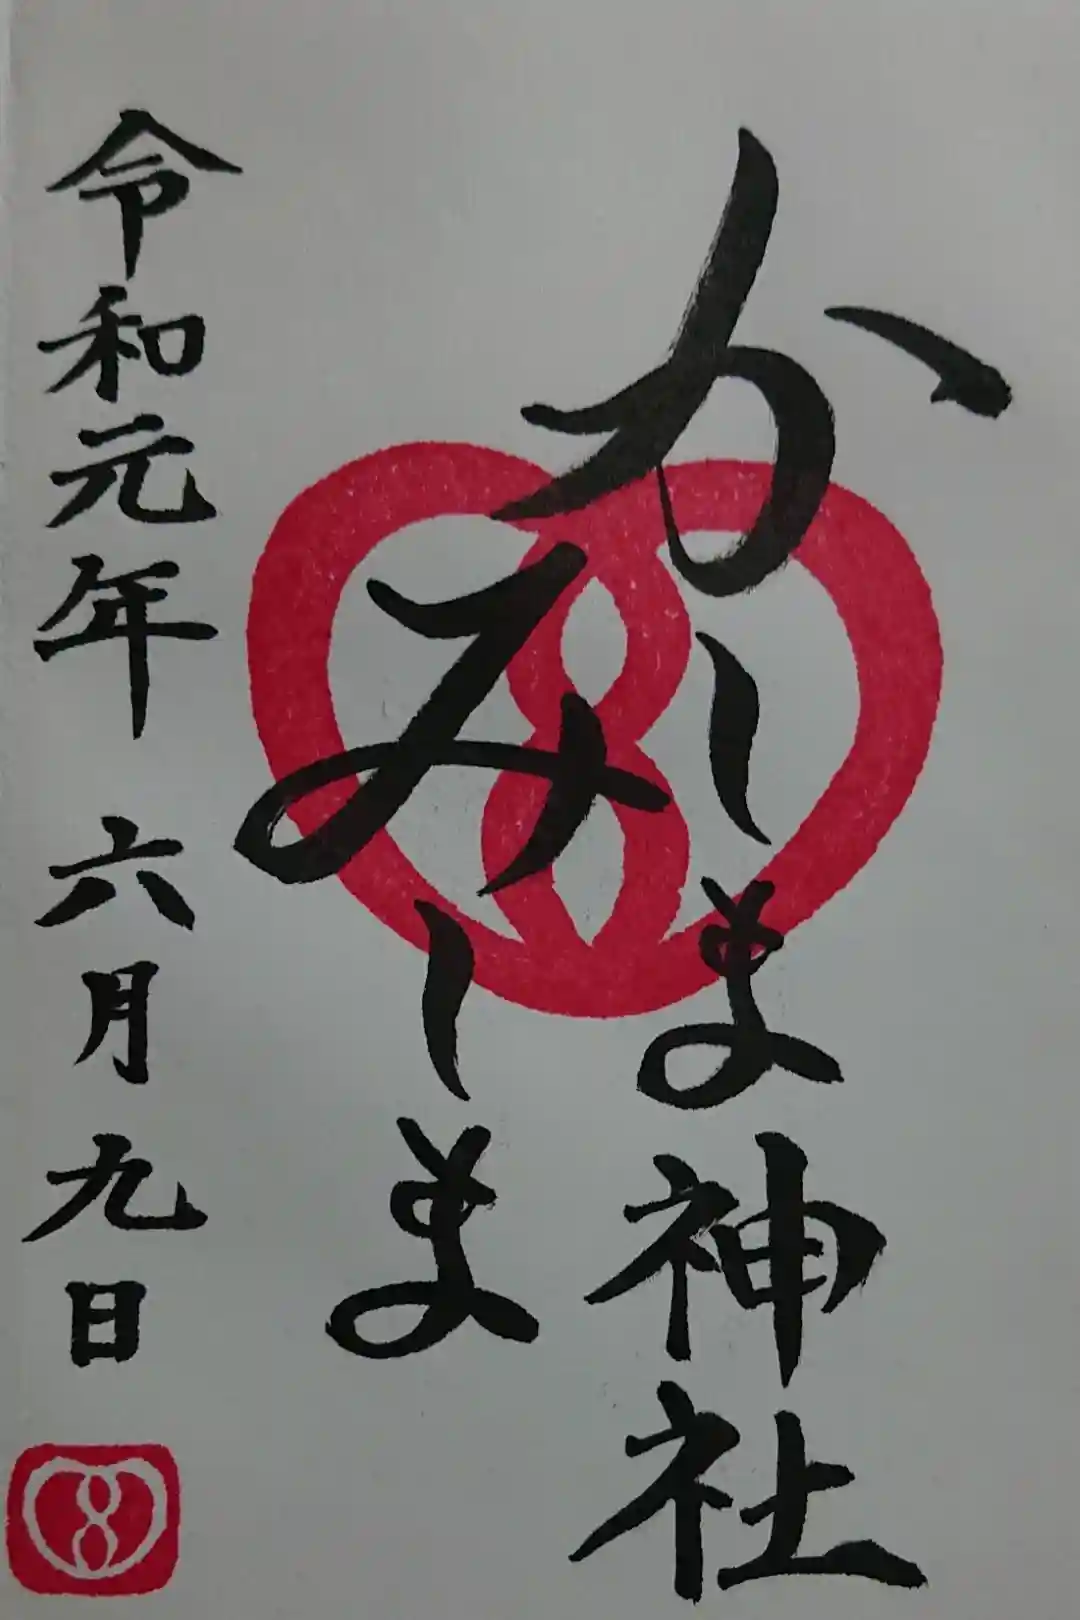 かしま神社
みしま
令和元年 六月九日